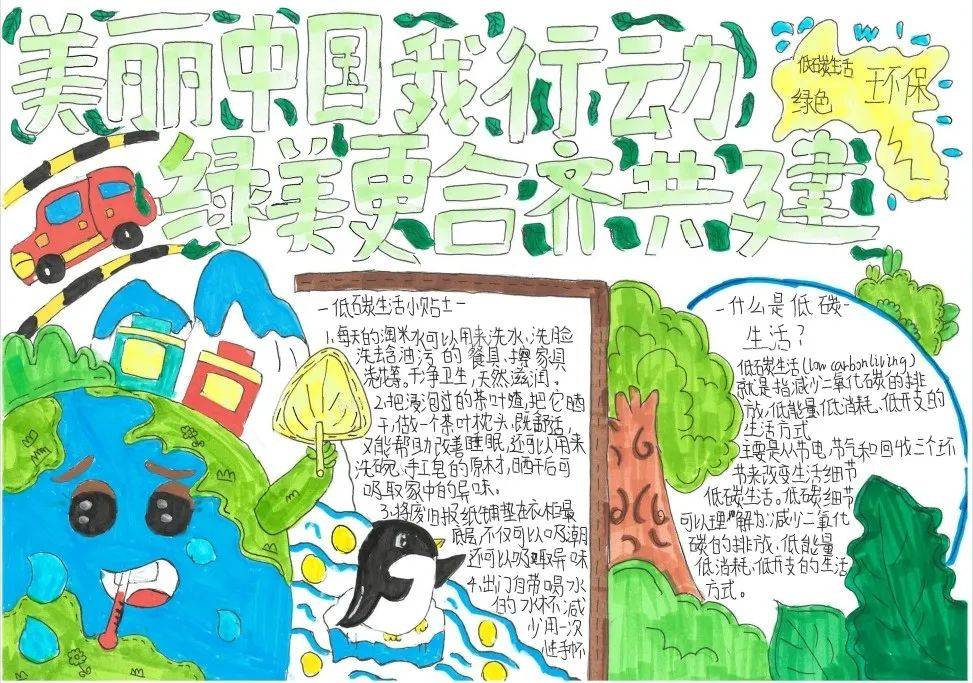 美丽中国我行动
绿美更合齐共建
低碳生活
绿色
环保
一低碳生活小贴士一
1、每天的淘米水可以用来洗水、洗脸
洗含油污的餐具、擦家具
浇花等。干净卫生，天然滋润。
2、把浸泡过的茶叶渣，把它晒
干，做一个茶叶枕头，既舒适，
又能帮助改善睡眠，还可以用来
洗碗、手工皂的原材，晒干后可
吸取家中的异味。
3、将废旧报纸铺垫在衣柜最
底层，不仅可以吸潮
还可以吸取异味
4、出门自带喝水
的水杯，减
少用一次
性手杯
一什么是低碳一
生活？
低碳生活(low carbon living)
就是指减少二氧化碳的排
放，低能量、低消耗、低开支的
生活方式
主要是从节电、节气和回收三个环
节来改变生活细节
低碳生活。低碳细节
可以理解为：减少二氧化
碳的排放，低能量
低消耗、低开支的生活
方式。